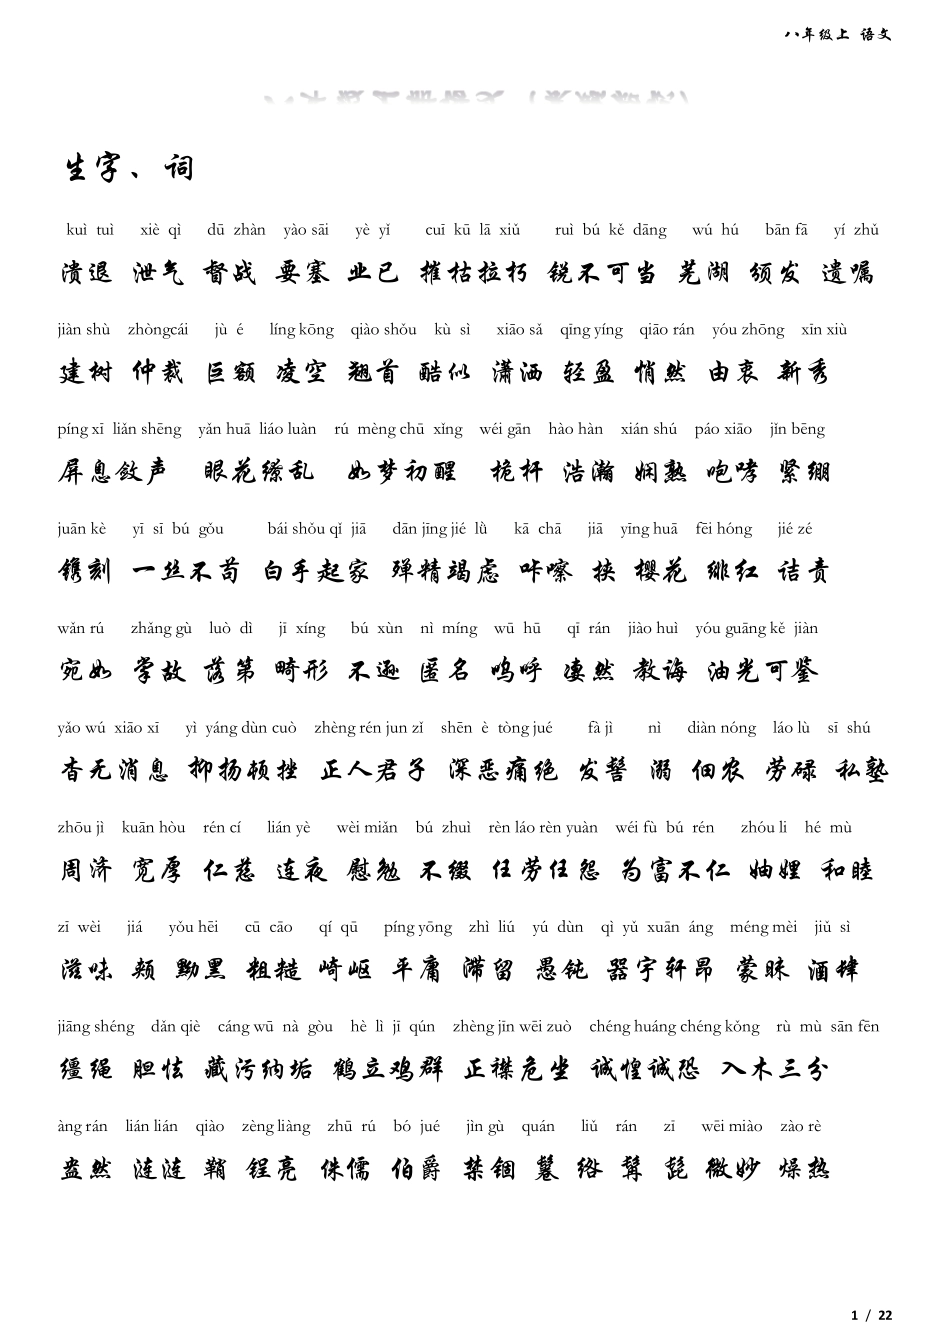 八年级上 语文
生字、词
kuì tuì xiè qì dū zhàn yào sāi yè yǐ cuī kū lā xiǔ ruì bú kě dāng wú hú bān fā yí zhǔ
溃退 泄气 督战 要塞 业已 摧枯拉朽 锐不可当 芜湖 颁发 遗嘱
jiàn shù zhòngcái jù é líng kōng qiào shǒu kù sì xiāo sǎ qīng yíng qiāo rán yóu zhōng xīn xiù
建树 仲裁 巨额 凌空 翘首 酷似 潇洒 轻盈 悄然 由衷 新秀
píng xī liǎn shēng yǎn huā liáo luàn rú mèng chū xǐng wéi gān hào hàn xián shú páo xiāo jǐn bēng
屏息敛声 眼花缭乱 如梦初醒 桅杆 浩瀚 娴熟 咆哮 紧绷
juān kè yī sī bú gǒu bái shǒu qǐ jiā dān jīng jié lǜ kā chā jiā yīng huā fēi hóng jié zé
镌刻 一丝不苟 白手起家 殚精竭虑 咔嚓 挟 樱花 绯红 诘责
wǎn rú zhǎng gù luò dì jī xíng bú xùn nì míng wū hū qī rán jiào huì yóu guāng kě jiàn
宛如 掌故 落第 畸形 不逊 匿名 呜呼 凄然 教诲 油光可鉴
yǎo wú xiāo xī yì yáng dùn cuò zhèng rén jun zǐ shēn è tòng jué fà jì nì diàn nóng láo lù sī shú
杳无消息 抑扬顿挫 正人君子 深恶痛绝 发髻 溺 佃农 劳碌 私塾
zhōu jì kuān hòu rén cí lián yè wèi miǎn bú zhuì rèn láo rèn yuàn wéi fù bú rén zhóu li hé mù
周济 宽厚 仁慈 连夜 慰勉 不缀 任劳任怨 为富不仁 妯娌 和睦
zī wèi jiá yǒu hēi cū cāo qí qū píng yōng zhì liú yú dùn qì yǔ xuān áng méng mèi jiǔ sì
滋味 颊 黝黑 粗糙 崎岖 平庸 滞留 愚钝 器宇轩昂 蒙昧 酒肆
jiāng shéng dǎn qiè cáng wū nà gòu hè lì jī qún zhèng jīn wēi zuò chéng huáng chéng kǒng rù mù sān fēn
缰绳 胆怯 藏污纳垢 鹤立鸡群 正襟危坐 诚惶诚恐 入木三分
àng rán lián lián qiào zèng liàng zhū rú bó jué jìn gù quán liǔ rán zī wēi miào zào rè
盎然 涟涟 鞘 锃亮 侏儒 伯爵 禁锢 鬈 绺 髯 髭 微妙 燥热
1 / 22